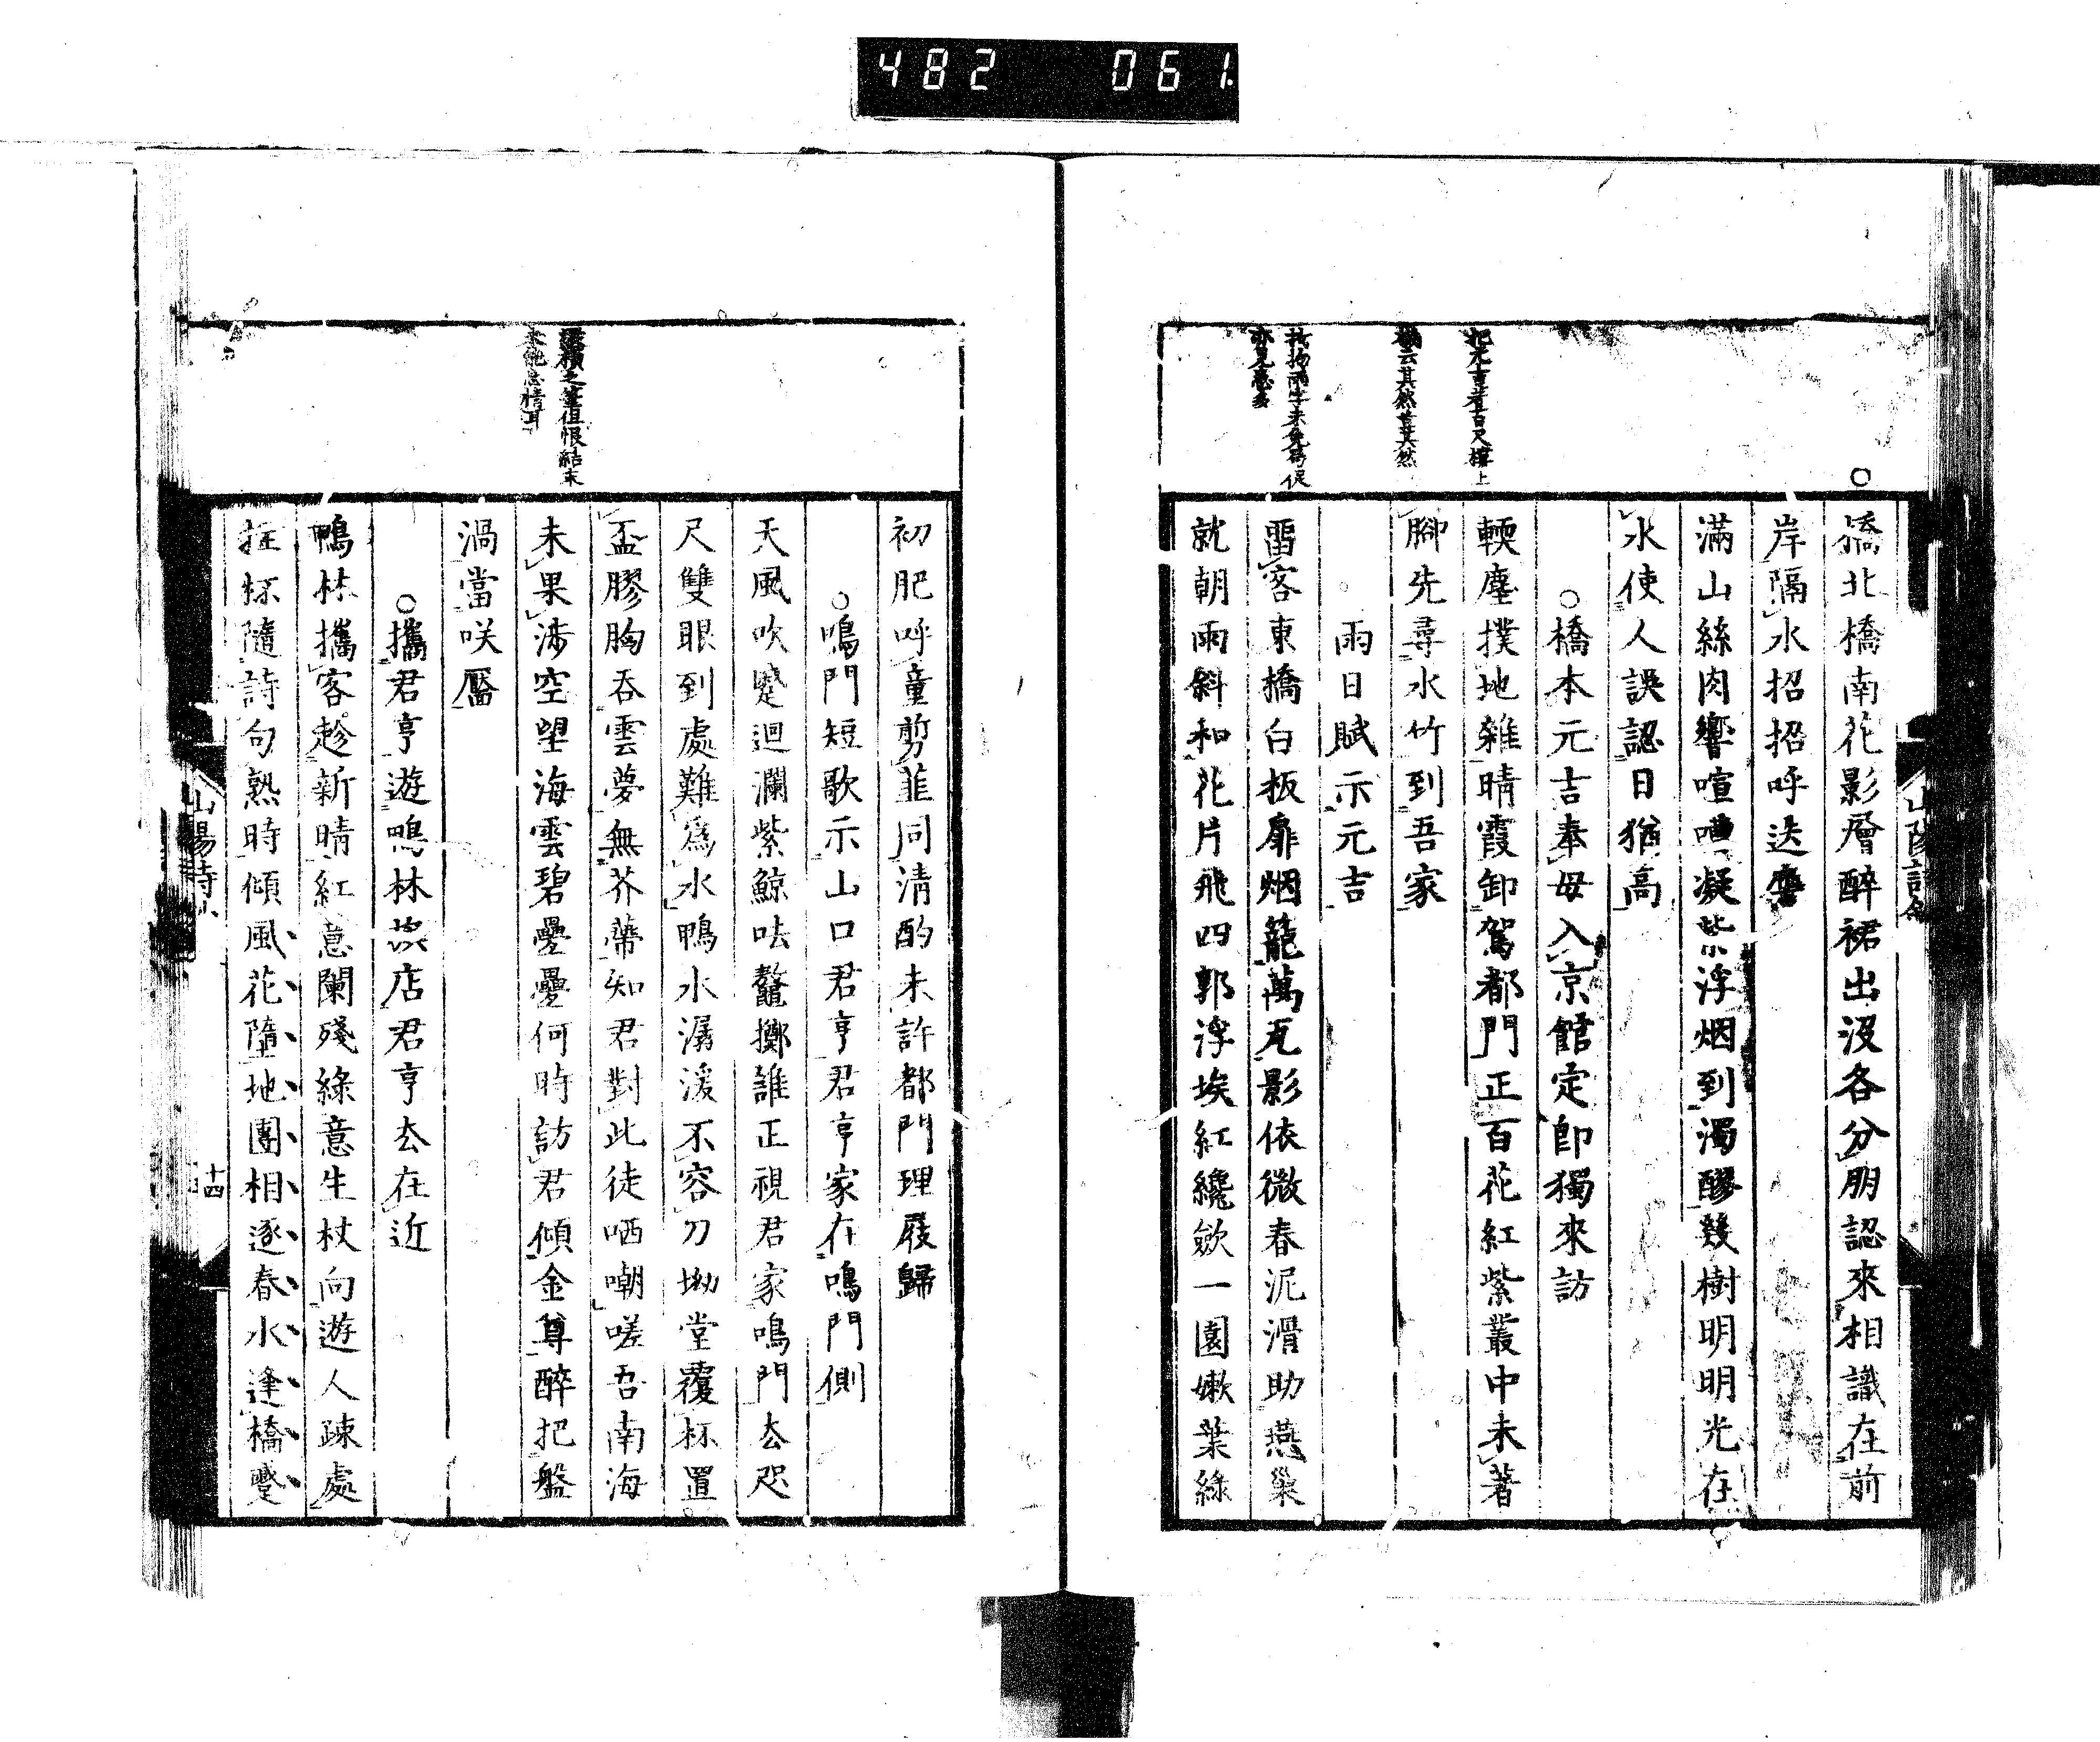 482 061
橋北橋南花影層醉裙出沒各分朋認來相識在前
岸隔水招招呼迭譍
滿山絲肉響喧嘈凝紫浮烟到濁醪幾樹明明光在
水使人誤認日猶高
○橋本元吉奉母入京館定卽獨來訪
輭塵撲地雜晴霞卸駕都門正百花紅紫叢中未著
腳先尋水竹到吾家
雨日賦示元吉
畱客東橋白板扉烟籠萬瓦影依微春泥滑助燕巢
就朝雨斜和花片飛四郭浮埃紅纔歛一園嫰葉綠
初肥呼童剪韮同淸酌未許都門理屐歸
○鳴門短歌示山口君亨君亨家在鳴門側
天風吹蹙迴瀾紫鯨呿鼇擲誰正視君家鳴門去咫
尺雙眼到處難爲水鴨水潺湲不容刀坳堂覆杯置
盃膠胸吞雲夢無芥蔕知君對此徒哂嘲嗟吾南海
未果涉空望海雲碧疊疊何時訪君傾金尊醉把盤
渦當咲靨
○攜君亨遊鴨林旗店君亨去在近
鴨林攜客趁新晴紅意闌殘綠意生杖向遊人疎處
拄杯隨詩句熟時傾風花墮地團相逐春水逢橋蹙
十四